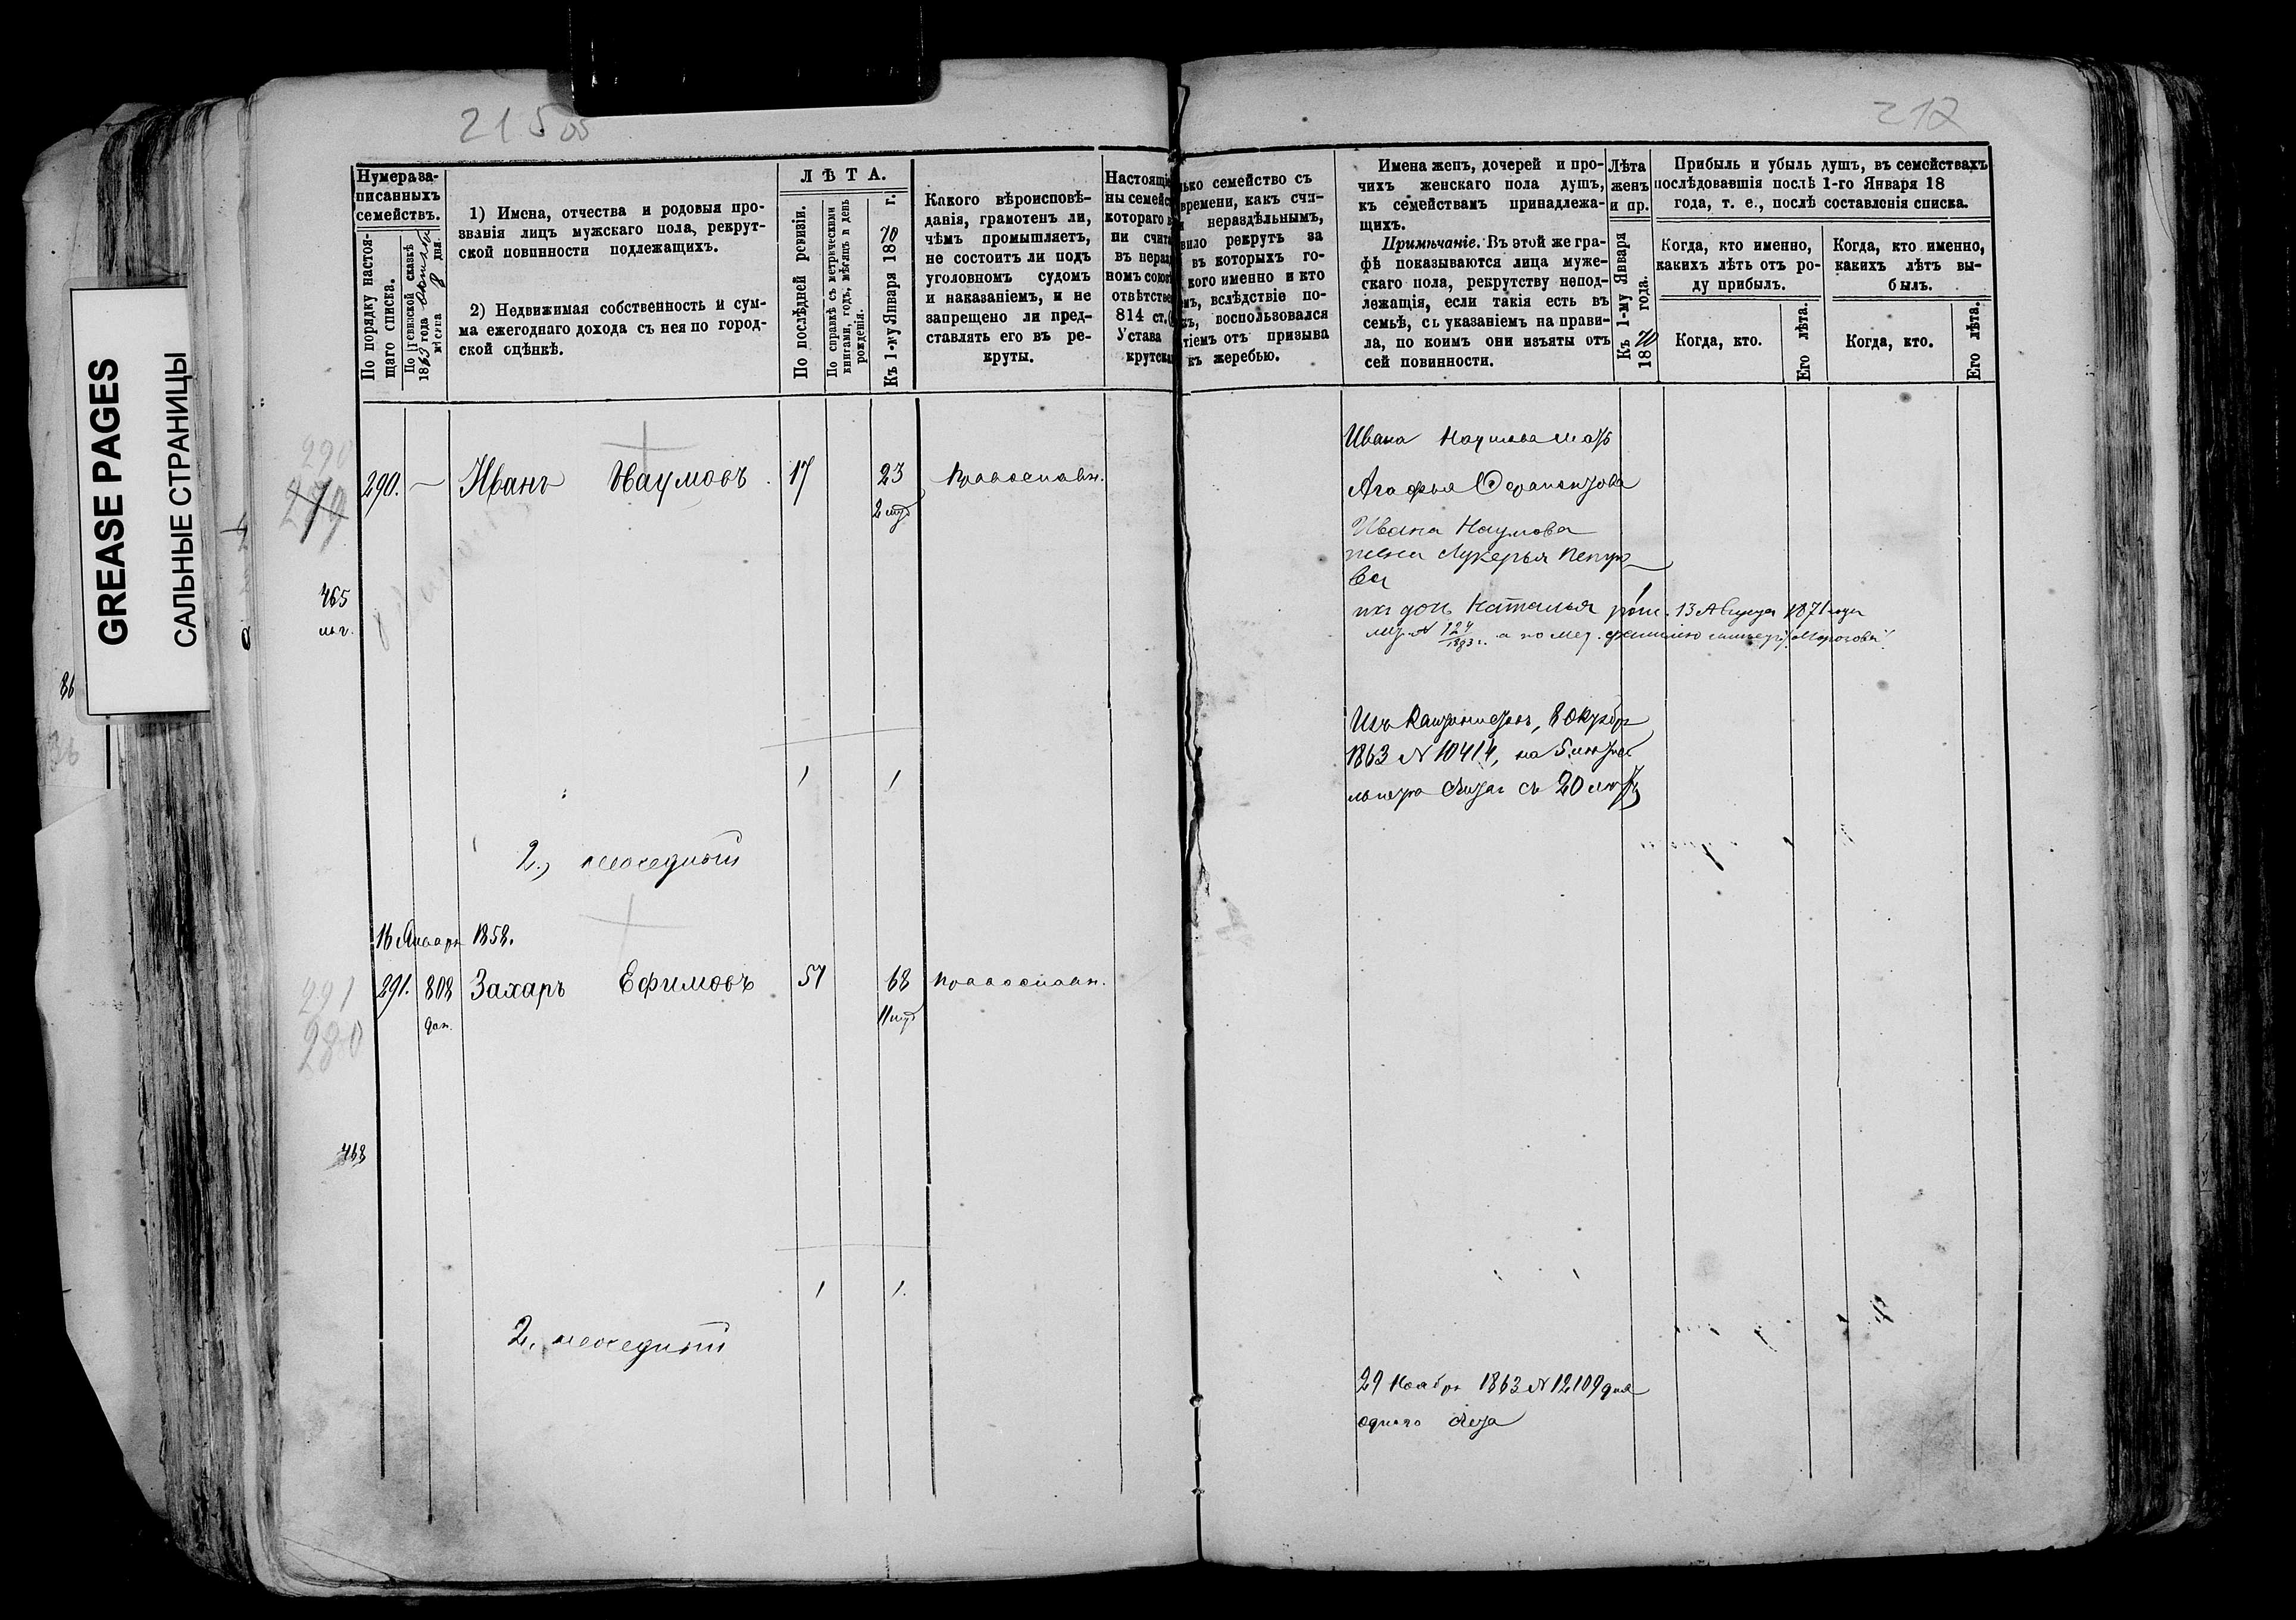 215 об
212
GREASE PAGES
САЛЬНЫЕ СТРАНИЦЫ
Нумера за-
писанныхъ
семействъ.
По порядку настоя-
щаго списка.
По ревизской сказкѣ
1863 года
мѣсяца 8 дня.
1) Имена, отчества и родовыя про-
званія лицъ мужскаго пола, рекрут-
ской повинности подлежащихъ.
2) Недвижимая собственность и сум-
ма ежегоднаго дохода съ нея по город-
ской оцѣнкѣ.
ЛѢТА.
По послѣдней ревизіи.
По справкѣ съ метрическими
книгами, годъ, мѣсяцъ и день
рожденія.
Къ 1-му Января 1870 г.
Какого вѣроисповѣ-
данія, грамотенъ ли,
чѣмъ промышляетъ,
не состоитъ ли подъ
уголовномъ судомъ
и наказаніемъ, и не
запрещено ли пред-
ставлять его въ ре-
круты.
Настоящі
ны семейс
котораго в
ни счита
въ нераз
номъ союз
отвѣтстве
814 ст.
Устава
крутска
лько семейство съ
времени, какъ счи-
нераздѣльнымъ,
вило рекрутъ за
въ которыхъ го-
кого именно и кто
емъ, вслѣдствіе по-
къ, воспользовался
тіемъ отъ призыва
къ жеребью.
Имена женъ, дочерей и про-
чихъ женскаго пола душъ,
къ семействамъ принадлежа-
щихъ.
Примѣчаніе. Въ этой же гра-
фѣ показываются лица муже-
скаго пола, рекрутству непод-
лежащія, если такія есть въ
семьѣ, съ указаніемъ на прави-
ла, по коимъ они изъяты отъ
сей повинности.
Лѣта
женъ
и пр.
Къ 1-му Января
1870 года.
Прибыль и убыль душъ, въ семействахъ
послѣдовавшія послѣ 1-го Января 18
года, т. е., послѣ составленія списка.
Когда, кто именно,
какихъ лѣтъ отъ ро-
ду прибылъ.
Когда, кто.
Его лѣта.
Когда, кто именно,
какихъ лѣтъ вы-
былъ.
Когда, кто.
Его лѣта.
290
279
290. — Иванъ Наумовъ 17 23 Православн.
465
Ивана Наумова мать
Агафья
Ивана Наумова
жена Лукерья Петро-
ва
их дочь Наталья рож. 13 Августа 1871 года
124
1893 г.
1863 № 10414, на
с 20
1 1
2.,
16 Января 1858.
291
280
291. 808 Захаръ Ефимовъ 51 68 Православн.
доп.
468
1 1.
2.
29 Ноября 1863 № 12109 для
одного